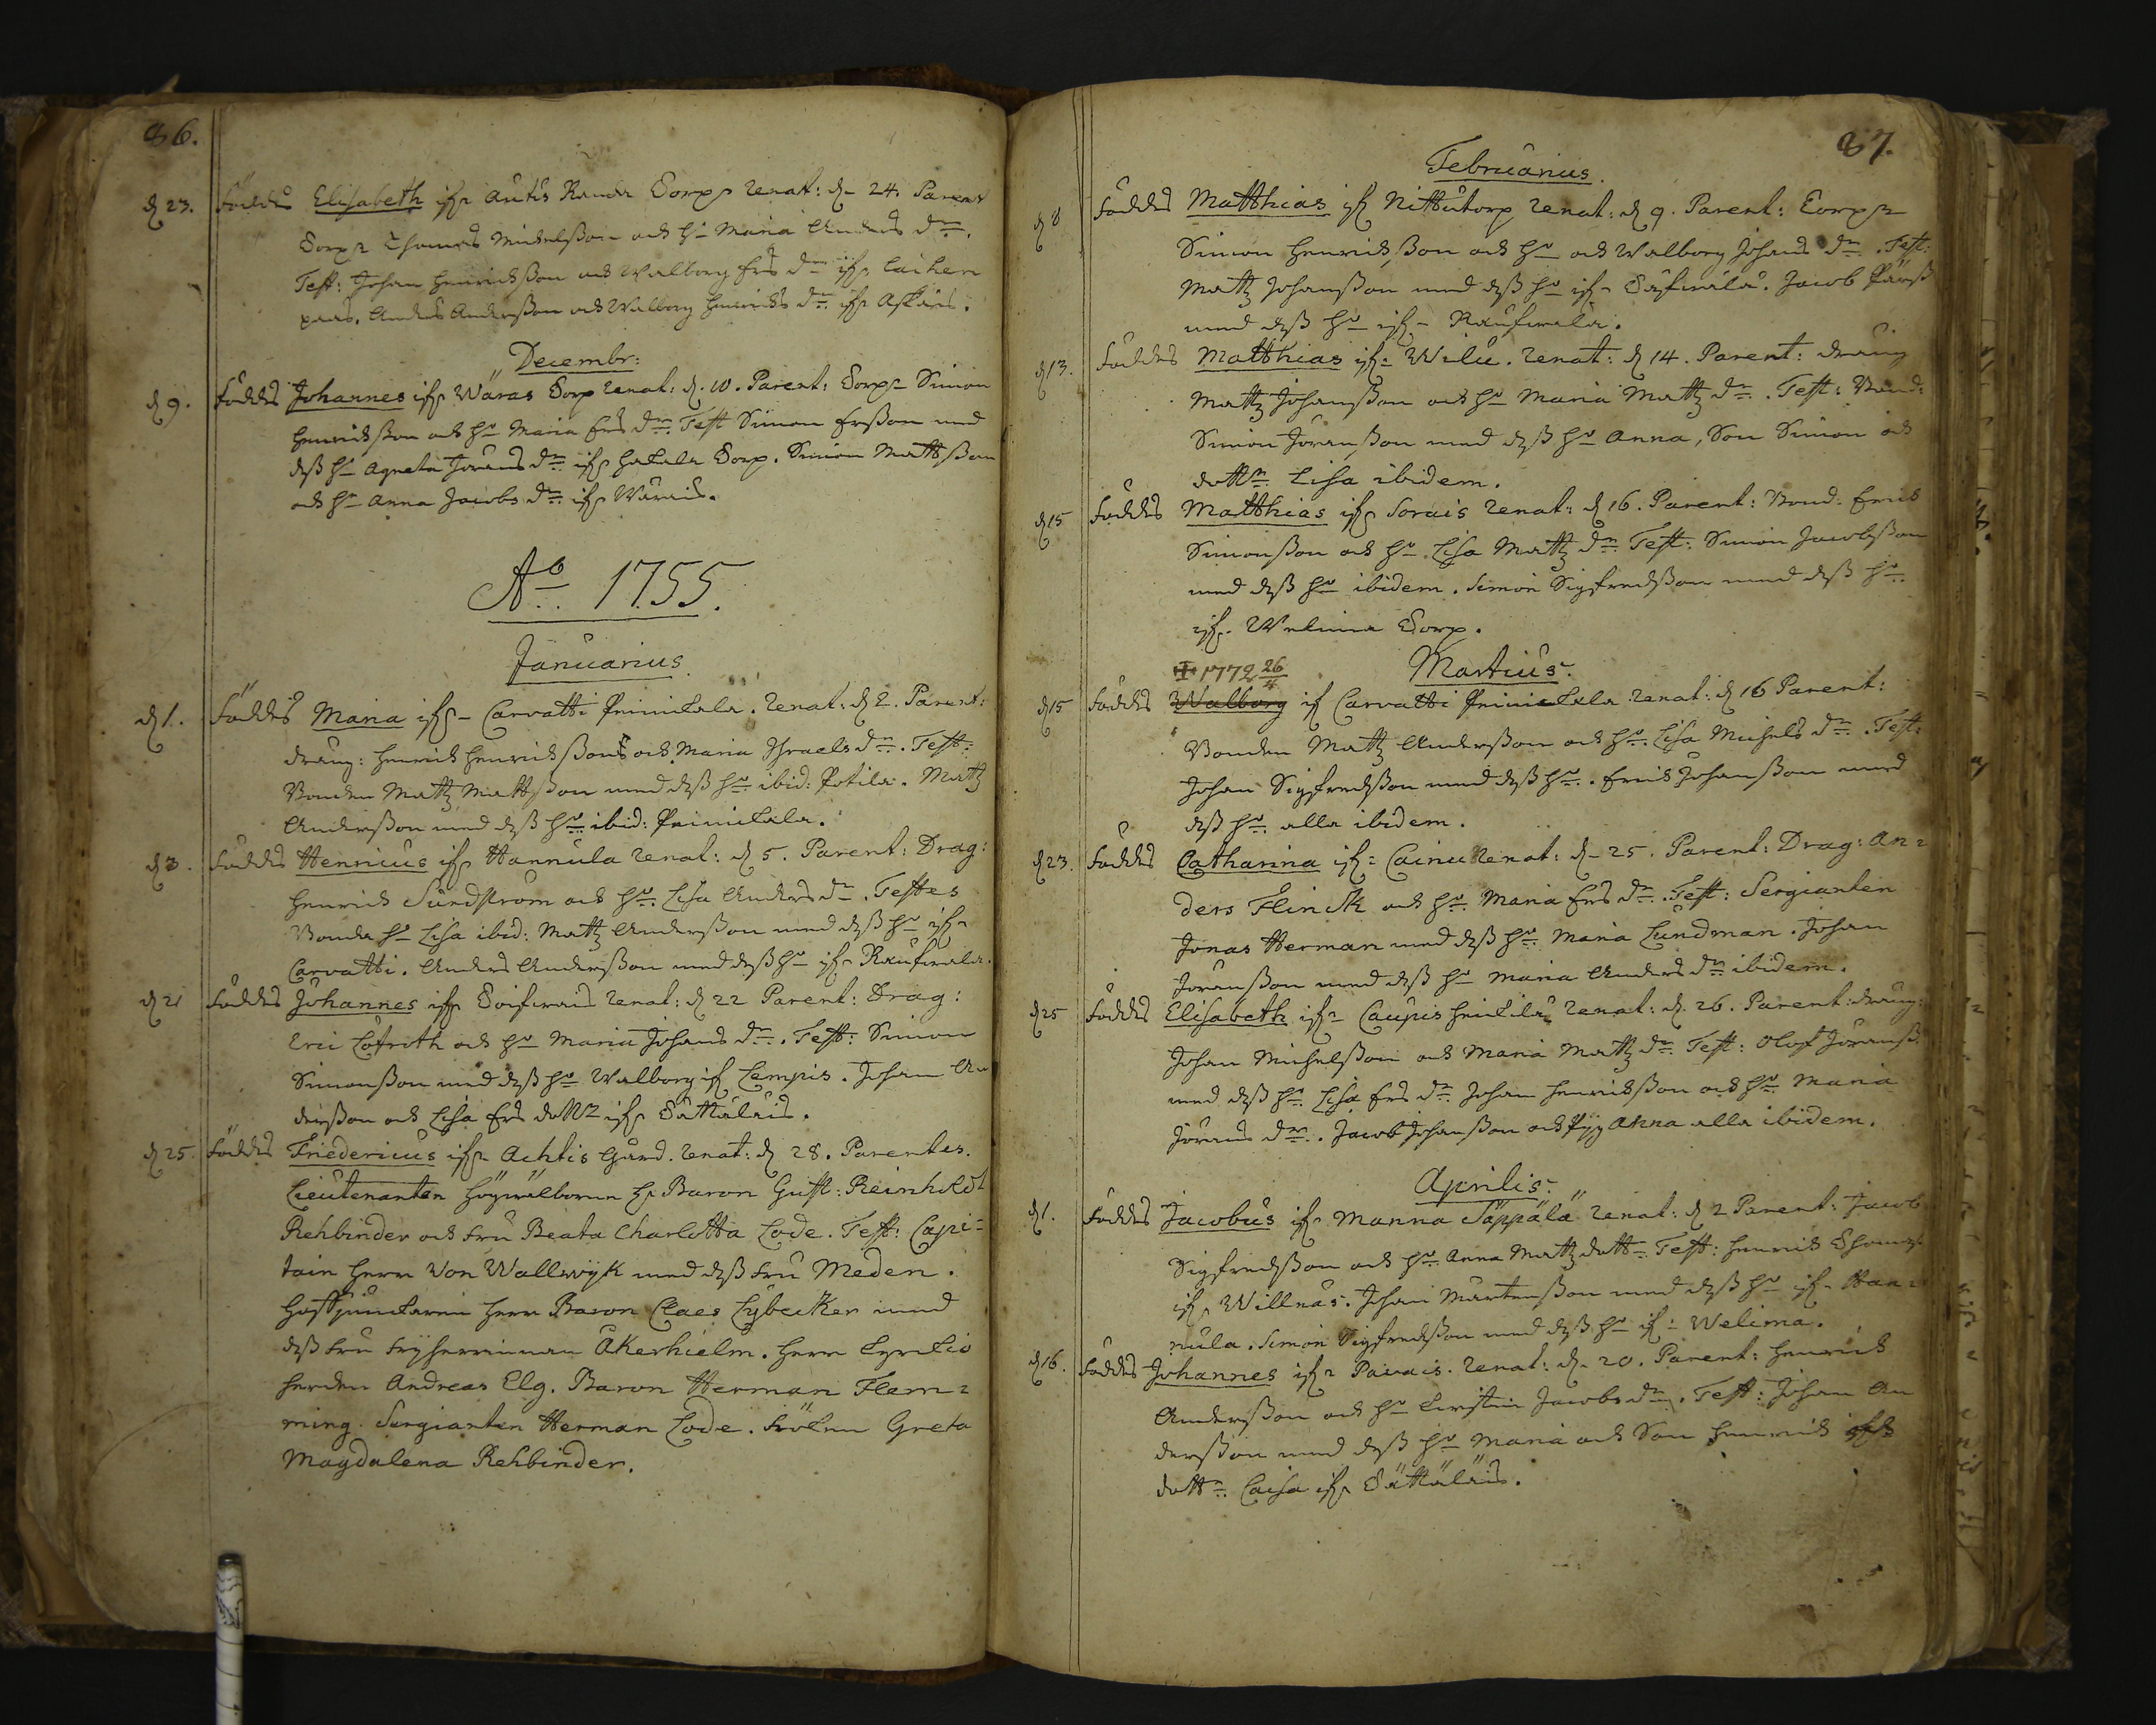 86.
d 23. Föddes Elisabeth ifr. Autis Randa Torp, renat: d. 24. Parent
Torp: Thomas Michelsson och h: Maria Anders dr.
Test: Johan Henricksson och Walborg Ers dr ifr. Caiken
Anders Andersson och Walborg Henricks dr ifr.
Decembr:
d 9. Föddes Johannes ifr. Wäras Torp renat: d. 10. Parent: Torp: Simon
Henricksson och h: Maria Ers dr. Test Simon Ersson med
dess h: Agneta Jörans dr ifr. Torp. Simon Mattsson
och h: Anna Jacobs dr ifr.
Ao 1755.
Januarius
d 1. Föddes Maria ifr. Carvatti Prinikala. renat: d 2. Parent:
dräng: Henrick Henricksson och Maria Israels dr. Test:
Bonden Mattz Mattsson med dess h: ibid: Potila. Mattz
Andersson med dess h: ibid: Prinikala.
d 3. Föddes Henricus ifr. Hannula renat: d 5. Parent: Drag:
Henrick Sundström och h: Lisa Anders dr. Testes
Bonde h: Lisa ibid: Mattz Andersson med dess h: ifr.
Carvatti. Anders Andersson med dess h: ifr.
d 21 Föddes Johannes ifr. renat: d 22 Parent: Drag:
Eric Löfrith och h: Maria Johans dr. Test: Simon
Simonsson med dess h: Walborg ifr Lempis. Johan An
dersson och Lisa Ers dottr ifr. Sättäläis.
d 25. Föddes Friedericus ifr. Achtis Gård. renat: d 28. Parentes.
Lieutenanten Högwälborne hr Baron Gust: Reinholdt
Rehbinder och fru Beata Charlotta Lode. Test: Capi=
tain Herr Von Wallwijk med dess fru Meden.
Herr Baron Claes Lybecker med
dess fru fryherrinnan Åkerhielm. Herr
herden Andreas Elg. Baron Herman Flem=
ming. Sergianten Herman Lode. fröken Greta
Magdalena Rehbinder.
87.
Februarius.
d 8 Föddes Matthias ifr Nittutorp renat: d 9. Parent: Torp:
Simon Henricksson och h: och Walborg Johans dr. Test:
Mattz Johansson med dess h: ifr. Jacob
med dess h: ifr.
d 13. Föddes Matthias ifr. Wilu. renat: d 14. Parent: dräng
Mattz Johansson och h: Maria Mattz dr. Test: Bond:
Simon Jöransson med dess h: Anna, Son Simon och
dottr: Lisa ibidem.
d 15 Föddes Matthias ifr. Sorvis renat: d 16. Parent: Bond: Erick
Simonsson och h: Lisa Mattz dr. Test: Simon Jacobsson
med dess h: ibidem. Simon Sigfredsson med dess h:
ifr. Welima Torp.
Martius.
1772 26/4
d 15 Föddes Walborg if Carvatti Prinikala renat: d 16 Parent:
Bonden Mattz Andersson och h: Lisa Michels dr. Test:
Johan Sigfredsson med dess h:. Erick Johansson med
dess h: alla ibidem.
d 23. Föddes Catharina ifr: Cainu renat: d. 25. Parent: Drag: An=
ders Flinck och h: Maria Ers dr. Test: Sergianten
Jonas Herman med dess h: Maria Lundman. Johan
Jöransson med dess h: Maria Anders dr ibidem.
d 25 Föddes Elisabeth ifr. Caupis renat: d. 26. Parent: dräng:
Johan Michelsson och Maria Mattz dr. Test: Olof Jöranss.
med dess h: Lisa Ers dr. Johan Henricksson och h: Maria
Jörans dr. Jacob Johansson och Pig Anna alla ibidem.
Aprilis.
d 1. Föddes Jacobus ifr. Manna Säppälä renat: d 2 Parent: Jacob
Sigfredsson och h: Anna Mattz dott: Test: Henrick Thomss.
ifr. Willnäs. Johan Mårtensson med dess h: ifr. Han=
nula. Simon Sigfredsson med dess h: if: Welima.
d 16. Föddes Johannes ifr. Pavais. renat: d. 20. Parent: Henrick
Andersson och h: Kirstin Jacobs dr. Test: Johan An
dersson med dess h: Maria och Son Henrick
dottr: Caisa ifr. Sättäläis.